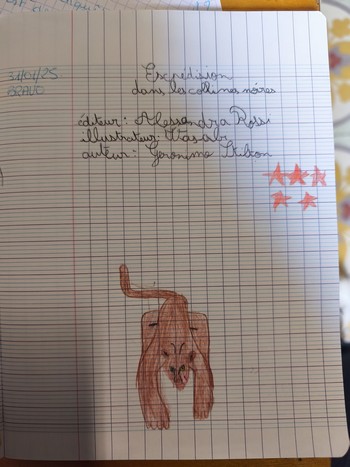 31/01/25
BRAVO
Expédision
dans les collines noires
éditeur: Alessandra Rossi
illustrateur:
auteur: Geronimo Stilton